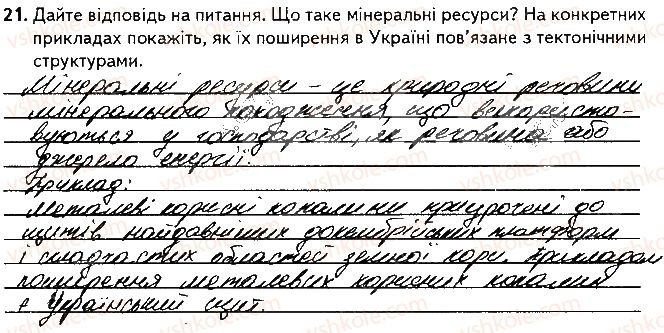 21. Дайте відповідь на питання. Що таке мінеральні ресурси? На конкретних
прикладах покажіть, як їх поширення в Україні пов'язане з тектонічними
структурами.
Мінеральні ресурси - це природні речовини
мінерального походження, що використо-
вуються у господарстві, як речовина або
джерело енергії.
Приклад:
Металеві корисні копалини приурочені до
щитів найдавніших докембрійських платформ
і складчастих областей земної кори. Прикладом
поширення металевих корисних копалин
є Український щит.